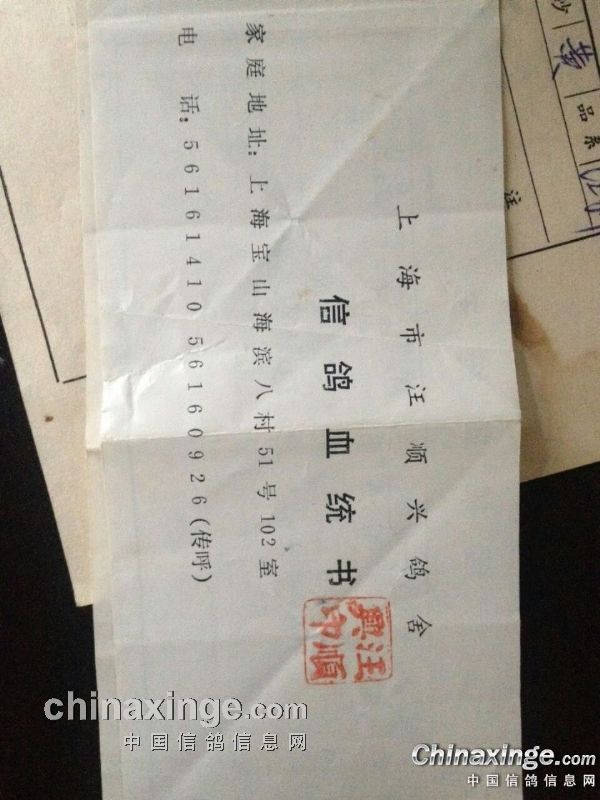 上海市汪顺兴鸽舍
信鸽血统书
家庭地址：上海宝山海滨八村51号102室
电话：56161410 56160926（传呼）
汪順
興印
黄
品系
注
chinaxinge.com
中国信鸽信息网
Chinaxinge.com
中国信鸽信息网